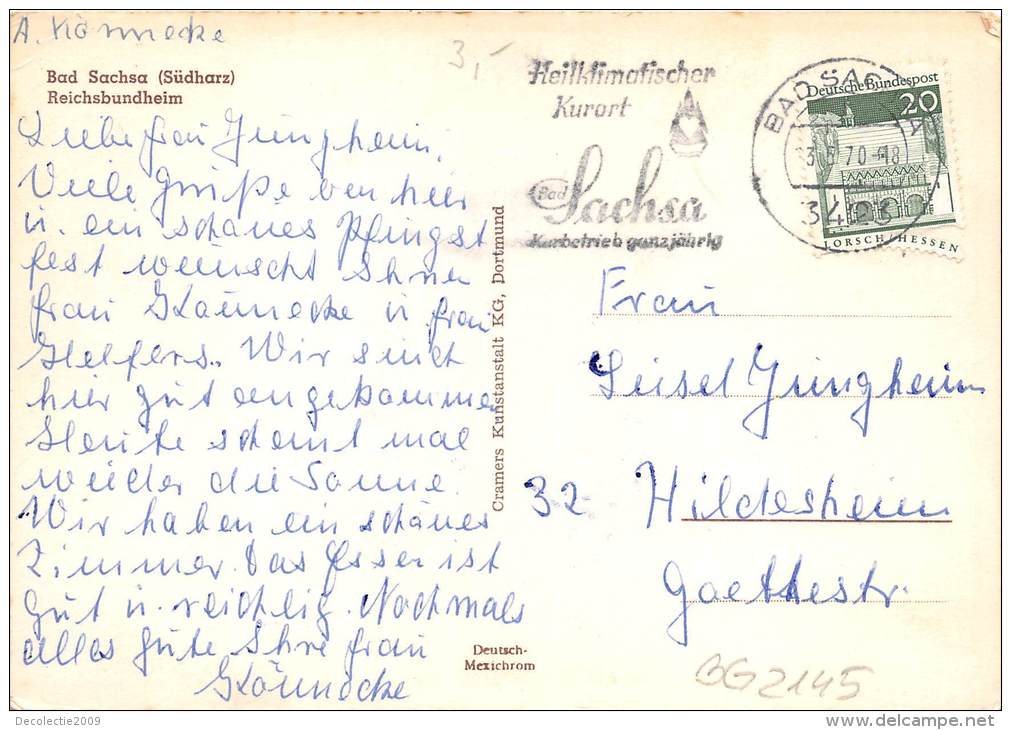 A. Könnecke
3,-
Bad Sachsa (Südharz)
Reichsbundheim
Liebe frau Jungheim,
Viele Grüße von hier
u. ein schönes Pfingst
fest wünscht Ihnen
frau Könnecke u frau
Helfers. Wir sind
hier gut angekommen
Heute scheint mal
wieder die Sonne.
Wir haben ein schönes
Zimmer. Das Essen ist
gut u. reichlig. Nochmals
alles gute Ihre frau
Könnecke
Cramers Kunstanstalt KG, Dortmund
Deutsch-
Mexichrom
Heilklimatischer
Kurort
Bad
Sachsa
Kurbetrieb ganzjährig
BAD SACHSA
70-18
Deutsche Bundespost
20
LORSCH/HESSEN
Frau
Leisel Jungheim
32 Hildesheim
Goethestr.
BG2145
Decolectie2009
delcampe.net